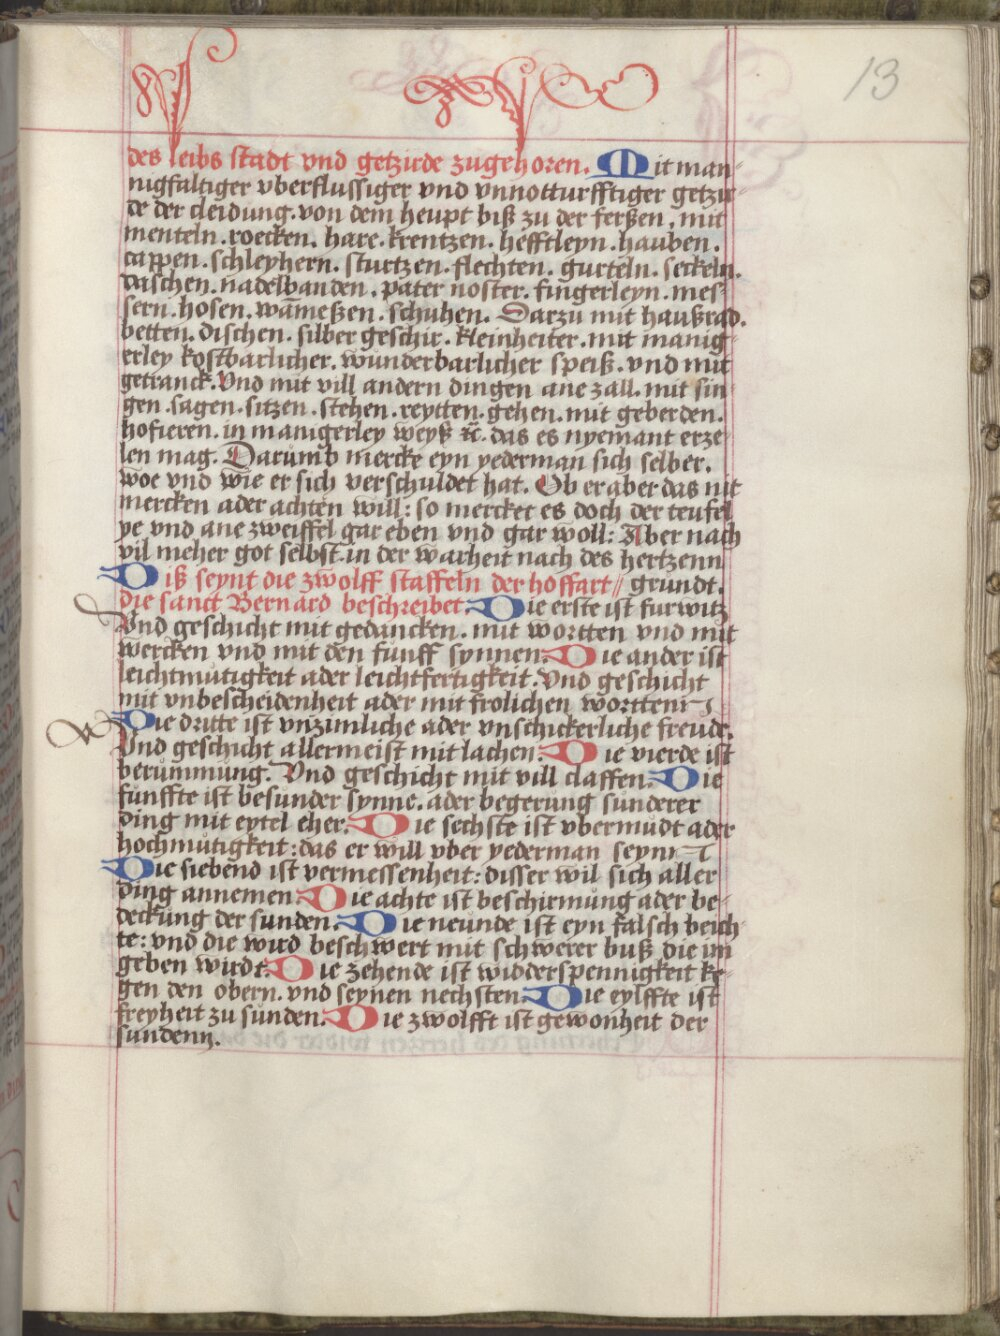 13
des leibs stadt vnd getzirde zugehoren. Mit man-
nigfaltiger vberflussiger vnd vnnotturfftiger getzir-
de der cleidung. von dem heupt biß zu der ferßen. mit
menteln. roecken. hare. krentzen. hefftleyn. hauben.
cappen. schleyhern. sturtzen. flechten. gurteln. seckeln.
daschen. nadelbanden. pater noster. fingerleyn. mes-
sern. hosen. wāmeßen. schuhen. Darzu mit haußrad.
betten. dischen. silber geschir. kleinheiter. mit manig-
erley kostbarlicher. wunderbarlicher speiß. vnd mit
getranck. Vnd mit vill andern dingen ane zall. mit sin-
gen. sagen. sitzen. stehen. reytten. gehen. mit geberden.
hofieren. in manigerley weyß ꝛc. das es nyemant erze-
len mag. Darumb mercke eyn yederman sich selber.
woe vnd wie er sich verschuldet hat. Ob er aber das nit
mercken ader achten will: so mercket es doch der teufel
ye vnd ane zweiffel gar eben vnd gar woll: Aber nach
vil meher got selbst. in der warheit nach des hertzenn
Diß seynt die zwolff staffeln der hoffart // grundt.
die sanct Bernard beschreibet. Die erste ist furwitz
Vnd geschicht mit gedancken. mit wortten vnd mit
wercken vnd mit den funff synnen. Die ander ist
leichtmutigkeit ader leichtfertigkeit. Vnd geschicht
mit vnbescheidenheit ader mit frolichen wortten
Die dritte ist vnzimliche ader vnschickerliche freude.
Vnd geschicht allermeist mit lachen. Die vierde ist
berummung. Vnd geschicht mit vill claffen. Die
funffte ist besunder synne. ader begerung sunderer
ding mit eytel eher. Die sechste ist vbermudt ader
hochmutigkeit: das er will vber yederman seyn
Die siebend ist vermessenheit: disser wil sich aller
ding annemen. Die achte ist beschirmung ader be-
deckung der sunden. Die neunde ist eyn falsch beich-
te: vnd die wird beschwert mit schwerer buß die im
geben wirdt. Die zehende ist widderspennigkeit ke-
gen den obern. vnd seynen nechsten. Die eylffte ist
freyheit zu sunden. Die zwolfft ist gewonheit der
sundenn.